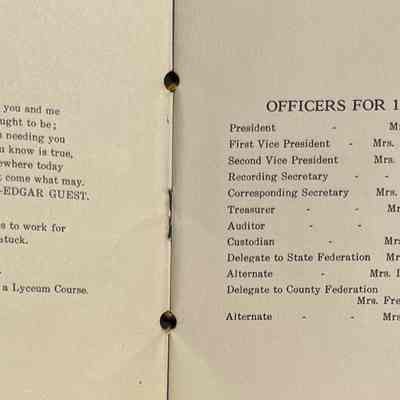 you and me
ught to be;
needing you
u know is true,
ewhere today
t come what may.
-EDGAR GUEST.
s to work for
stuck.
a Lyceum Course.
OFFICERS FOR 1
President - M
First Vice President - Mrs.
Second Vice President Mrs.
Recording Secretary - -
Corresponding Secretary Mrs.
Treasurer - - M
Auditor - -
Custodian - Mrs
Delegate to State Federation M
Alternate - Mrs. I
Delegate to County Federation
Mrs. Fre
Alternate - - Mrs